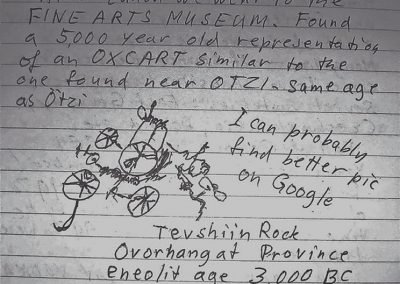 we went to the
FINE ARTS MUSEUM. Found
a 5,000 year old representation
of an OXCART similar to the
one found near OTZI. same age
as Ötzi
I can probably
find better pic
on Google
Tevshiin Rock
Ovorhangat Province
eneolit age 3,000 BC